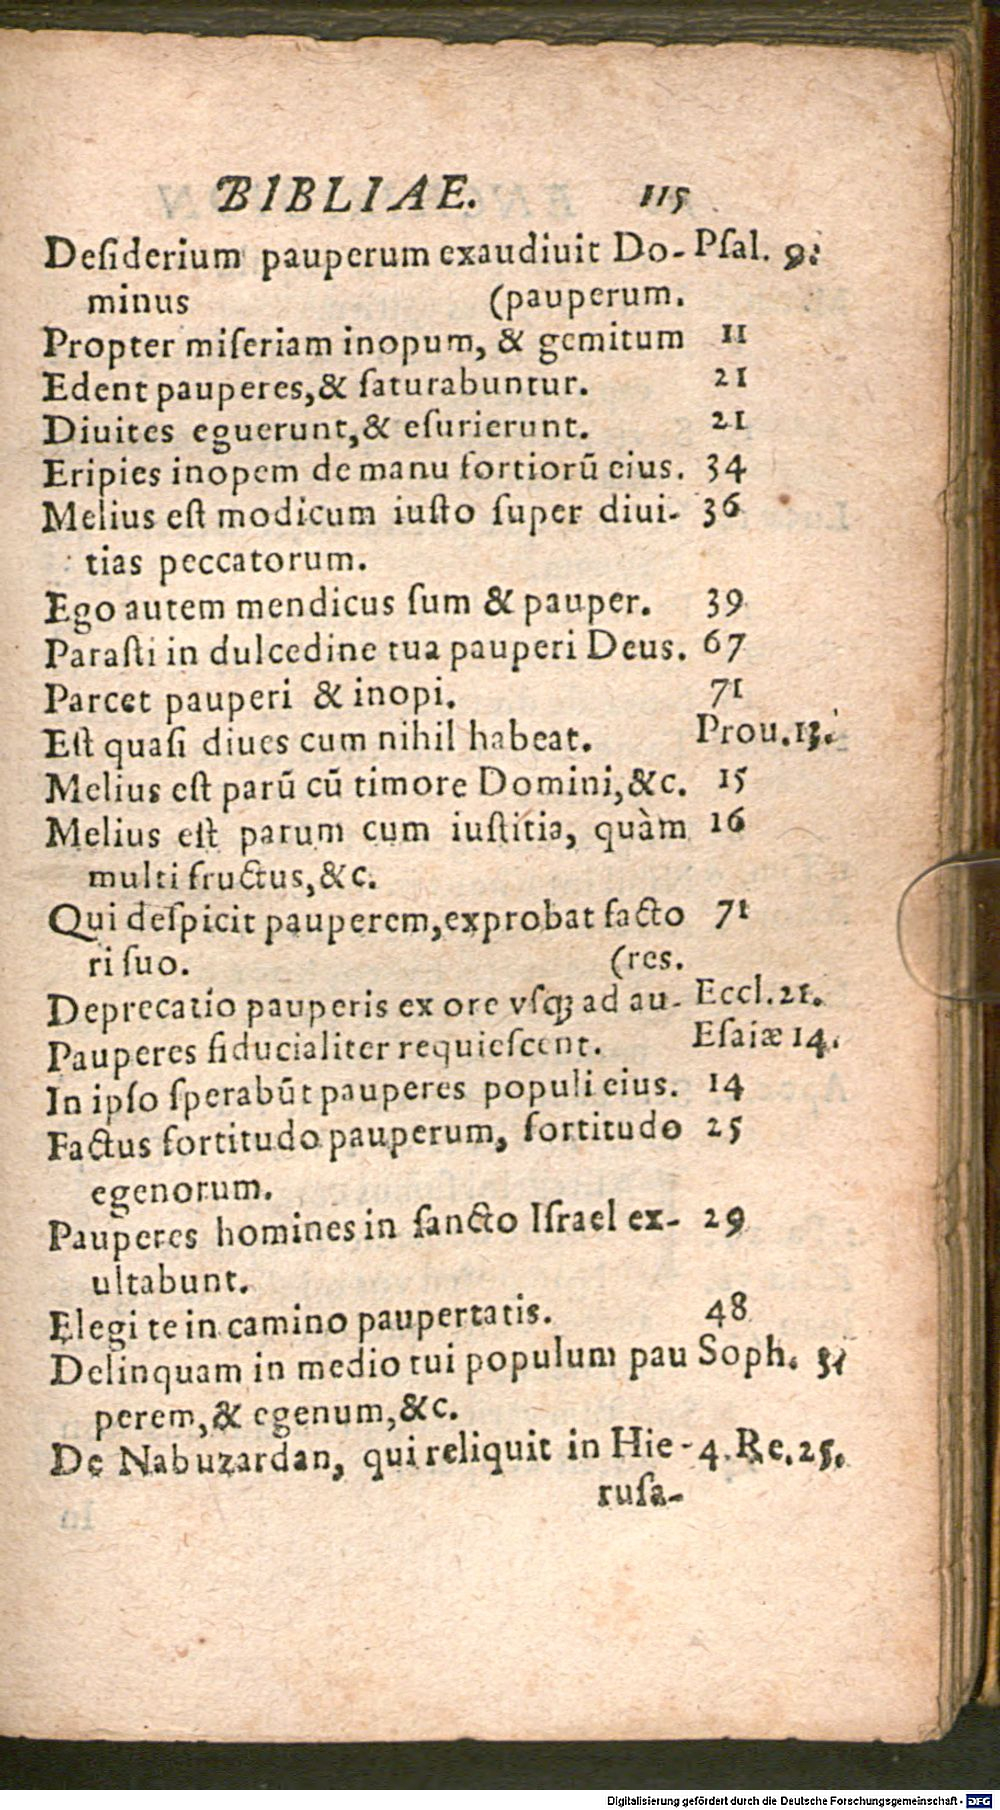 BIBLIAE. 115
Deſiderium pauperum exaudiuit Do- Pſal. 9.
minus (pauperum.
Propter miſeriam inopum, & gemitum 11
Edent pauperes, & ſaturabuntur. 21
Diuites eguerunt, & eſurierunt. 21
Eripies inopem de manu fortiorū eius. 34
Melius eſt modicum iuſto ſuper diui- 36
tias peccatorum.
Ego autem mendicus ſum & pauper. 39
Paraſti in dulcedine tua pauperi Deus. 67
Parcet pauperi & inopi. 71
Eſt quaſi diues cum nihil habeat. Prou. 13.
Melius eſt parū cū timore Domini, &c. 15
Melius eſt parum cum iuſtitia, quàm 16
multi fructus, &c.
Qui deſpicit pauperem, exprobat facto 71
ri ſuo. (res.
Deprecatio pauperis ex ore vſq; ad au- Eccl. 21.
Pauperes fiducialiter requieſcent. Eſaiæ 14.
In ipſo ſperabūt pauperes populi eius. 14
Factus fortitudo pauperum, fortitudo 25
egenorum.
Pauperes homines in ſancto Iſrael ex- 29
ultabunt.
Elegi te in camino paupertatis. 48
Delinquam in medio tui populum pau Soph. 3.
perem, & egenum, &c.
De Nabuzardan, qui reliquit in Hie- 4. Re. 25.
ruſa-
Digitalisierung gefördert durch die Deutsche Forschungsgemeinschaft - DFG